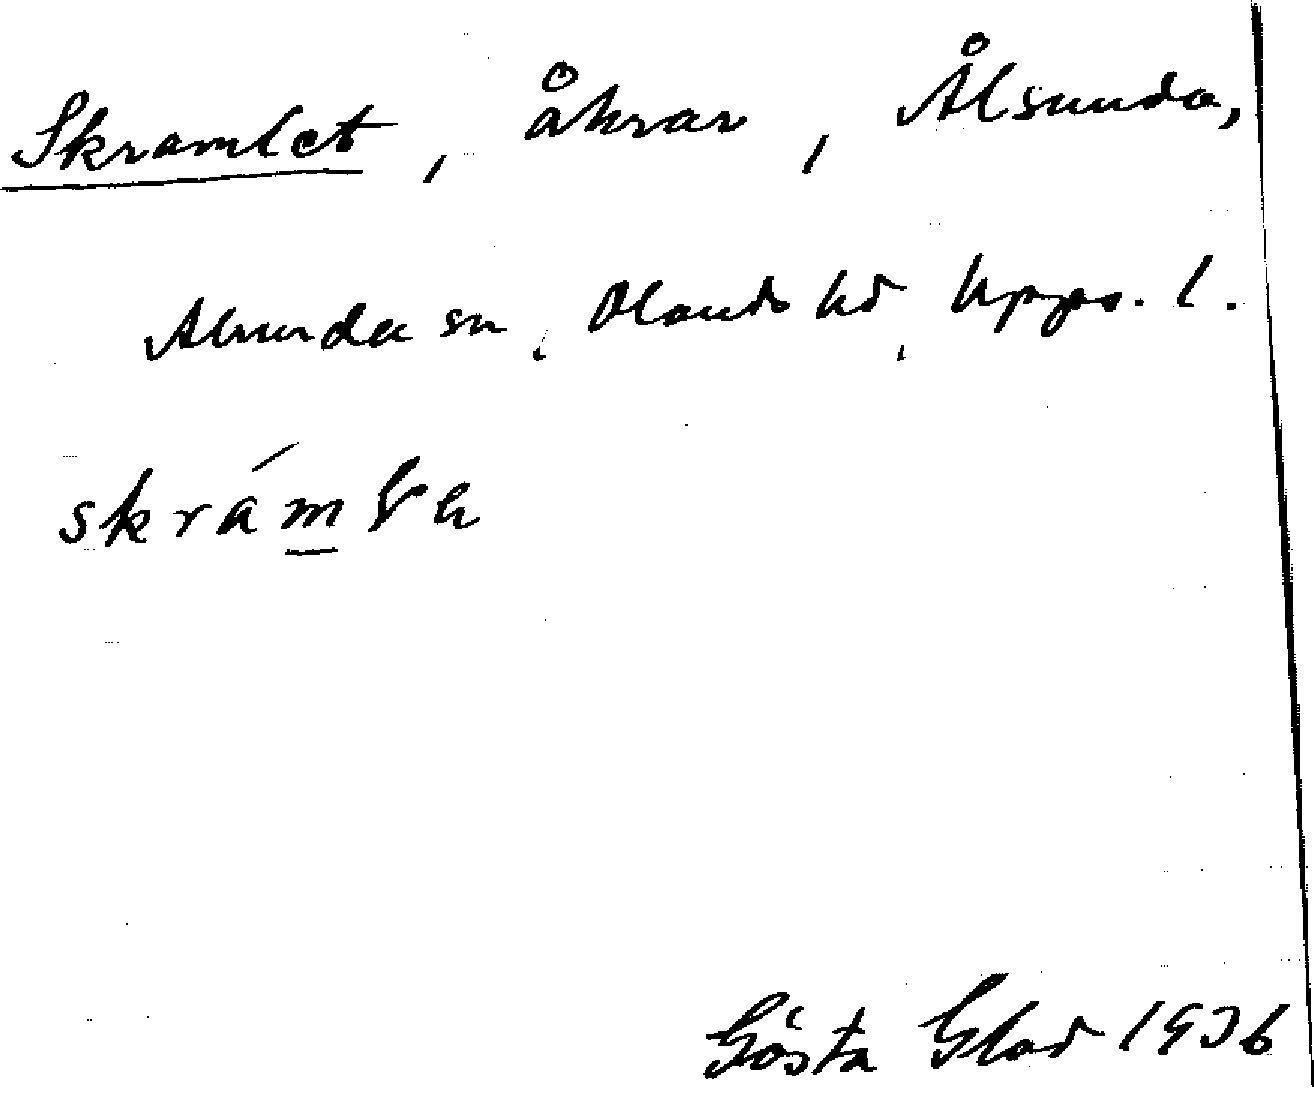 Skramlet, åkrar, Ålsunda,
Alunda sn, Olands hd, Upps. l.
Gösta Glad 1936